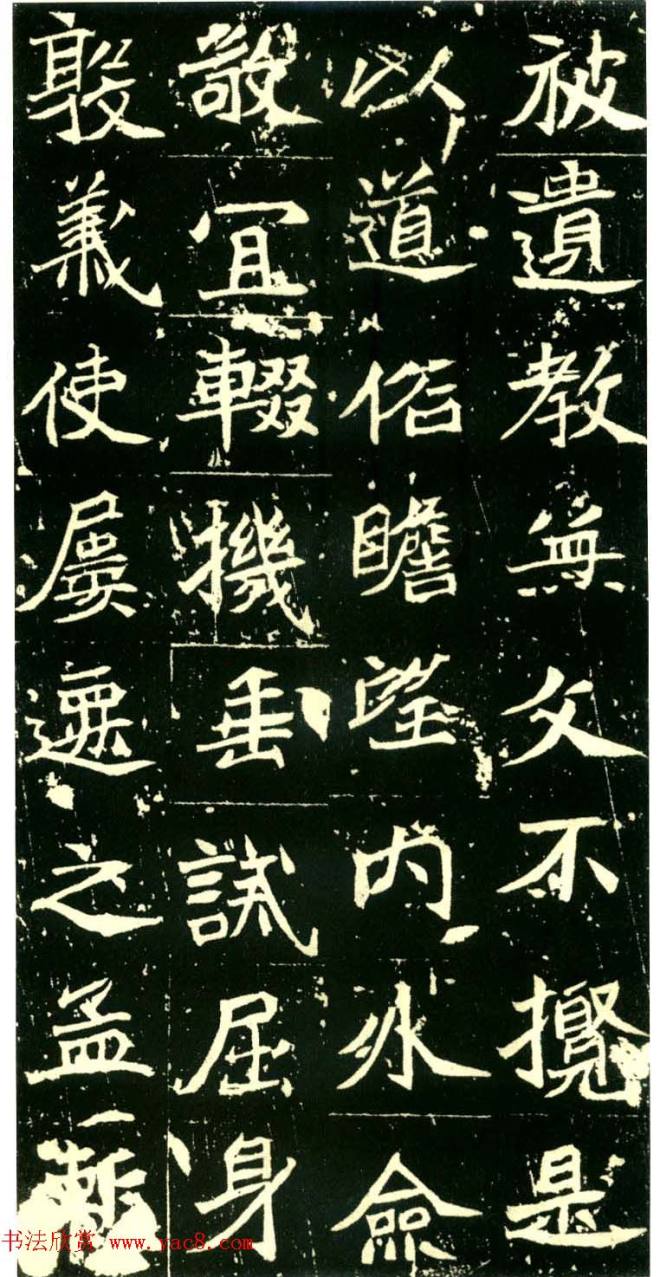 被遺教無文不攬是
以道俗瞻望内外僉
敬宜輟機垂試屈身
義使屢之孟暫
书法欣赏 www.yac8.com